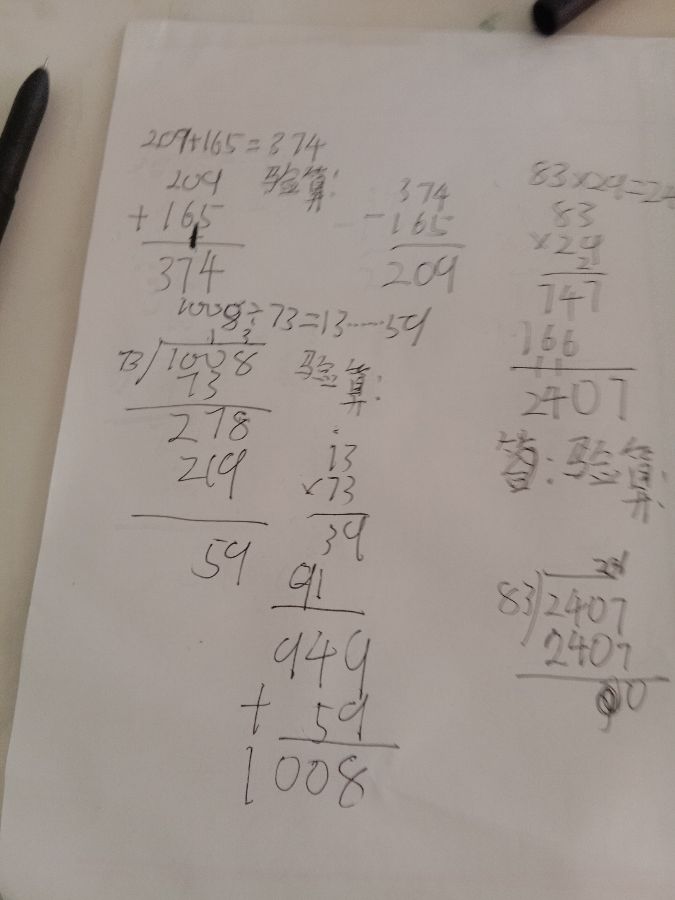 209+165=374
209 验算:
+165
374
374
-165
209
1008÷73=13……59
13
73/1008
73
278
219
59
验算:
13
×73
39
91
949
+ 59
1008
83×29=24
83
×29
2
747
166
11
2407
验算:
29
83)2407
2407
0